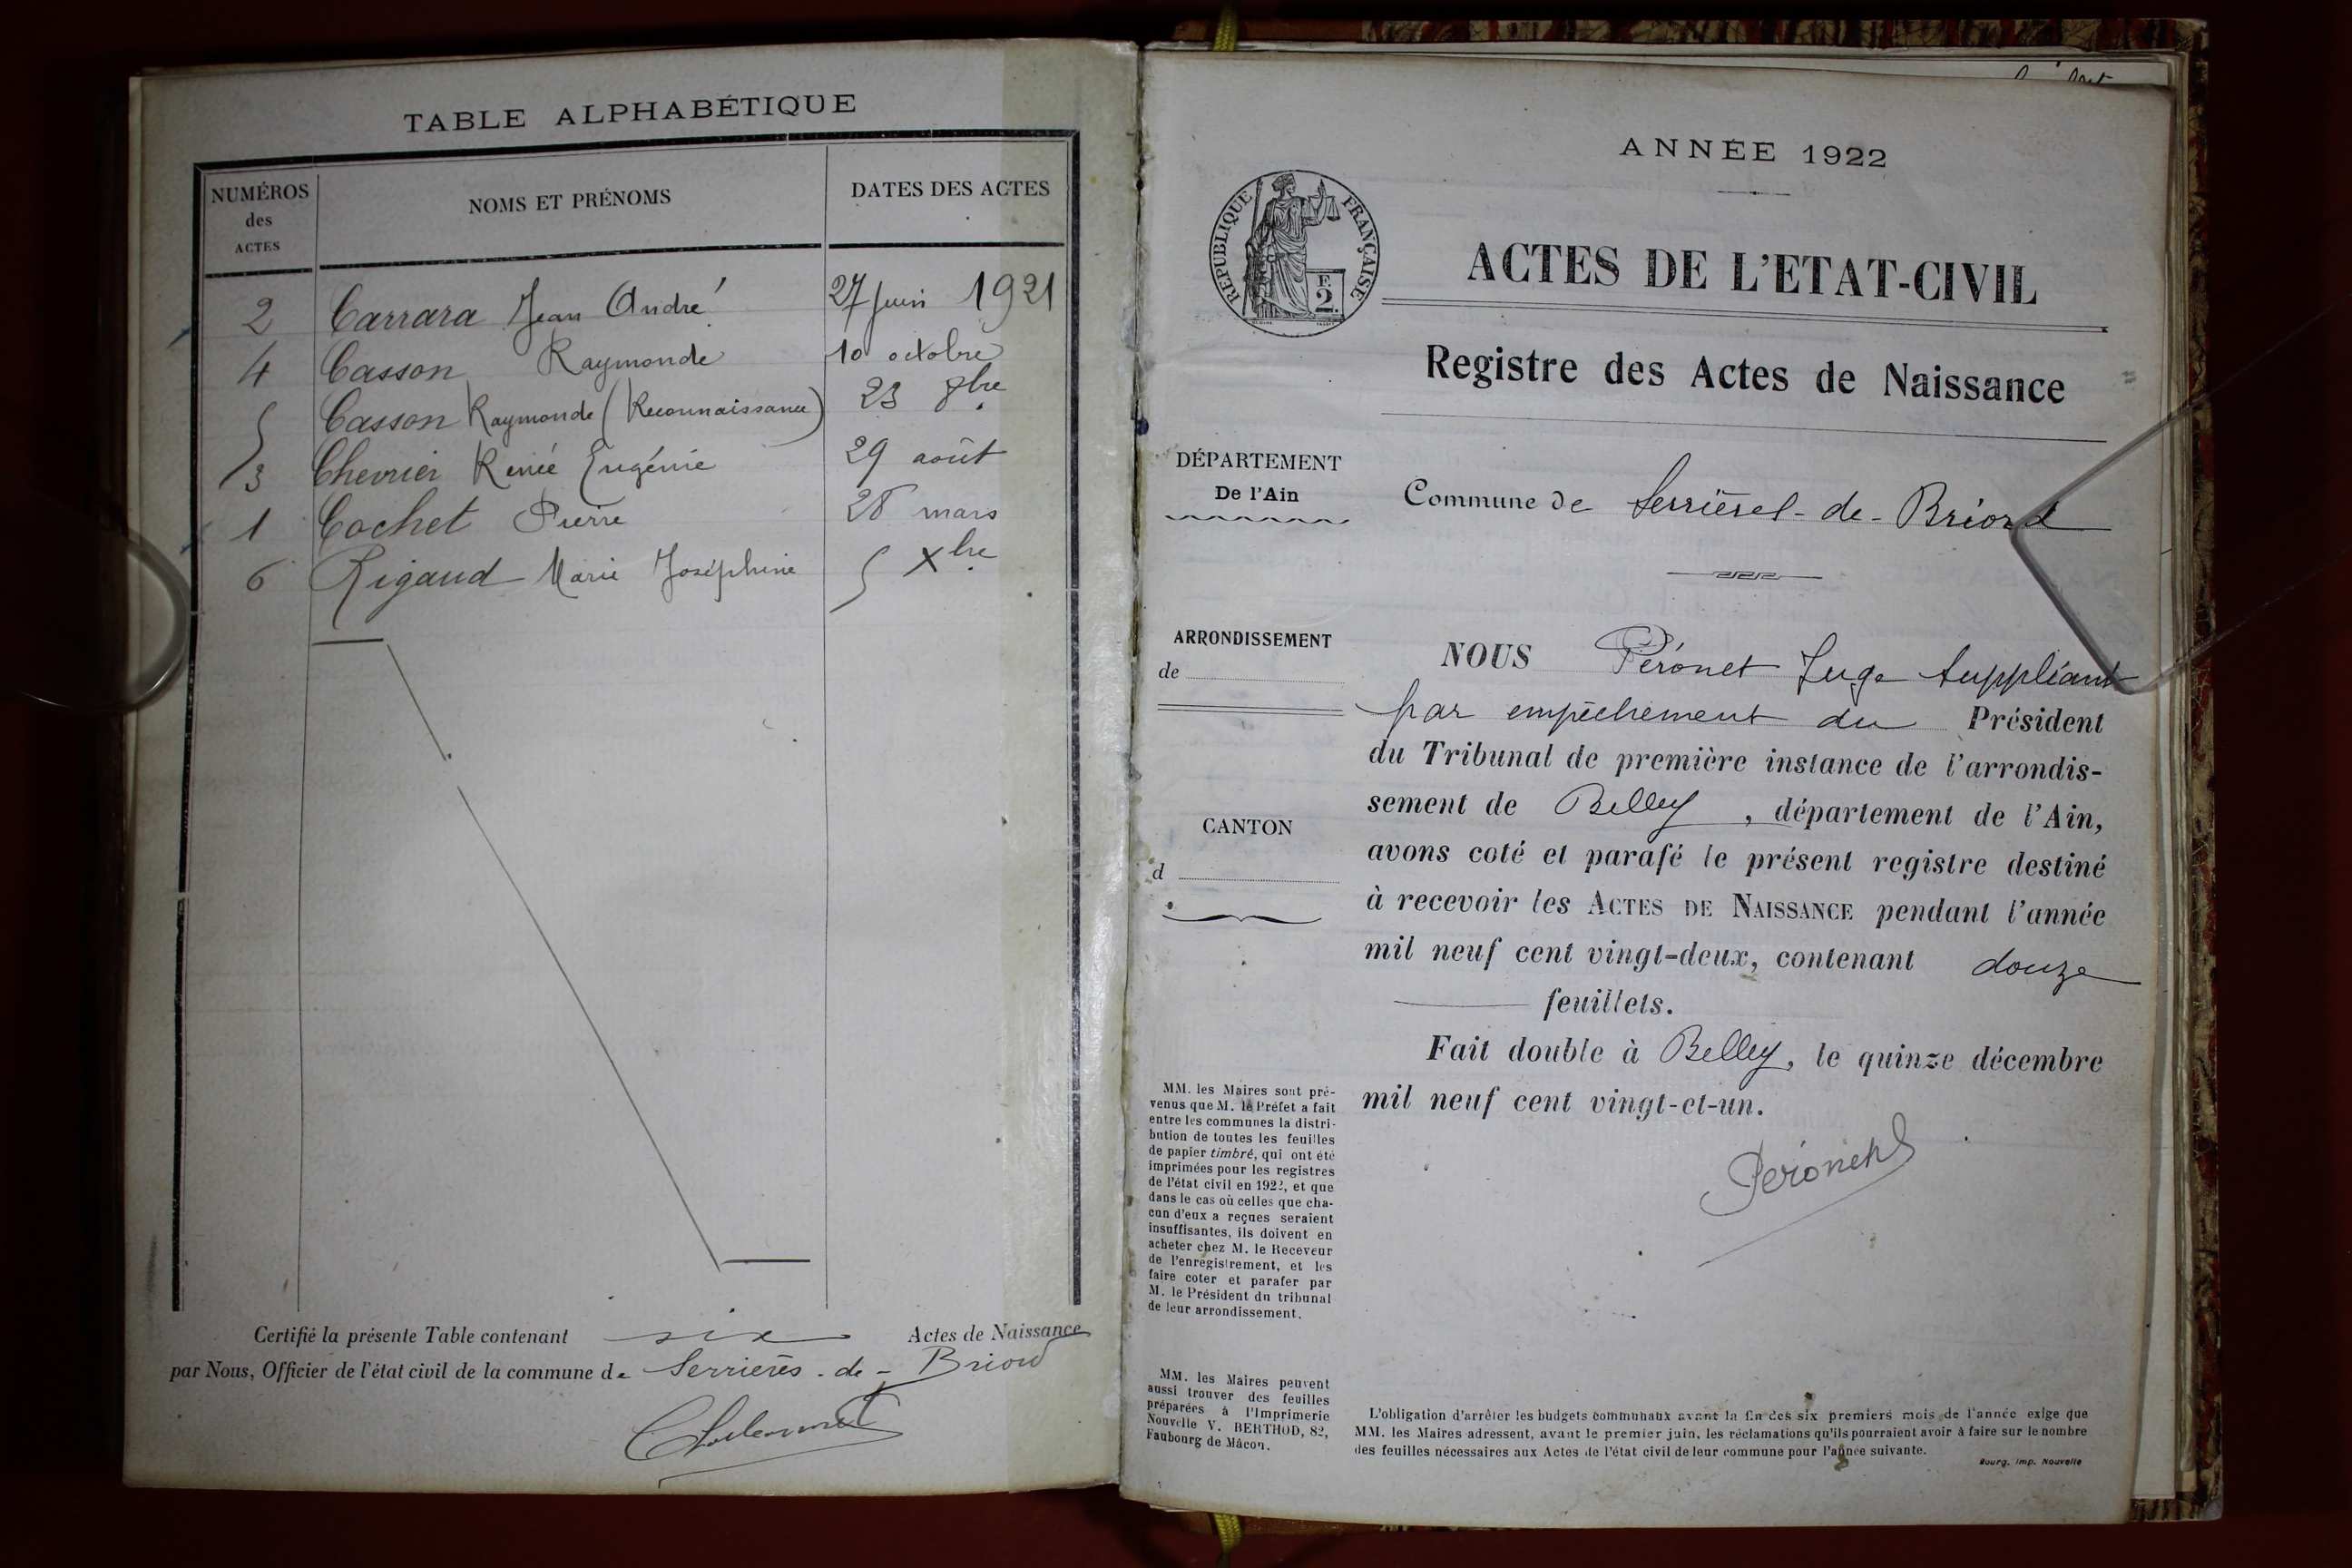 TABLE ALPHABÉTIQUE
NUMÉROS des ACTES NOMS ET PRÉNOMS DATES DES ACTES
2 Carrara Jean André 27 juin 1921
4 Casson Raymonde 10 octobre
5 Casson Raymonde (Reconnaissance) 23 8bre
3 Chevrier Renée Eugénie 29 août
1 Cochet Pierre 28 mars
6 Rigaud Marie Joséphine 5 Xbre
Certifié la présente Table contenant six Actes de Naissance
par Nous, Officier de l'état civil de la commune de Serrières-de-Briord
ANNÉE 1922
RÉPUBLIQUE FRANÇAISE
E
2.
ACTES DE L'ETAT-CIVIL
Registre des Actes de Naissance
DÉPARTEMENT
De l'Ain
Commune de Serrières-de-Briord
ARRONDISSEMENT
de
CANTON
d
NOUS Péronet Juge Suppléant
par empêchement du Président
du Tribunal de première instance de l'arrondis-
sement de Belley, département de l'Ain,
avons coté et parafé le présent registre destiné
à recevoir les ACTES DE NAISSANCE pendant l'année
mil neuf cent vingt-deux, contenant douze
feuillets.
Fait double à Belley, le quinze décembre
mil neuf cent vingt-et-un.
Péronet
MM. les Maires sont pré-
venus que M. le Préfet a fait
entre les communes la distri-
bution de toutes les feuilles
de papier timbré, qui ont été
imprimées pour les registres
de l'état civil en 1922, et que
dans le cas où celles que cha-
cun d'eux a reçues seraient
insuffisantes, ils doivent en
acheter chez M. le Receveur
de l'enregistrement, et les
faire coter et parafer par
M. le Président du tribunal
de leur arrondissement.
MM. les Maires peuvent
aussi trouver des feuilles
préparées à l'Imprimerie
Nouvelle V. BERTHOD, 82,
Faubourg de Mâcon.
L'obligation d'arrêter les budgets communaux avant la fin des six premiers mois de l'année exige que
MM. les Maires adressent, avant le premier juin, les réclamations qu'ils pourraient avoir à faire sur le nombre
des feuilles nécessaires aux Actes de l'état civil de leur commune pour l'année suivante.
Bourg, Imp. Nouvelle